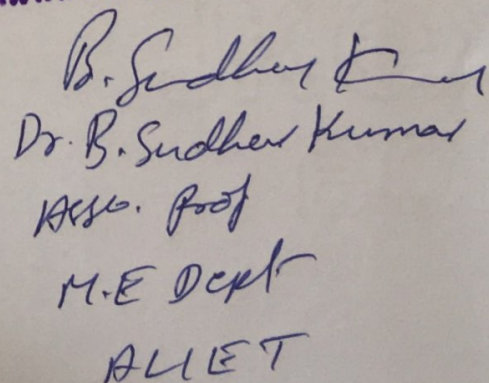 B. Sudhar Kumar
Dr. B. Sudhar Kumar
Asso. Prof
M.E Dept
ALIET